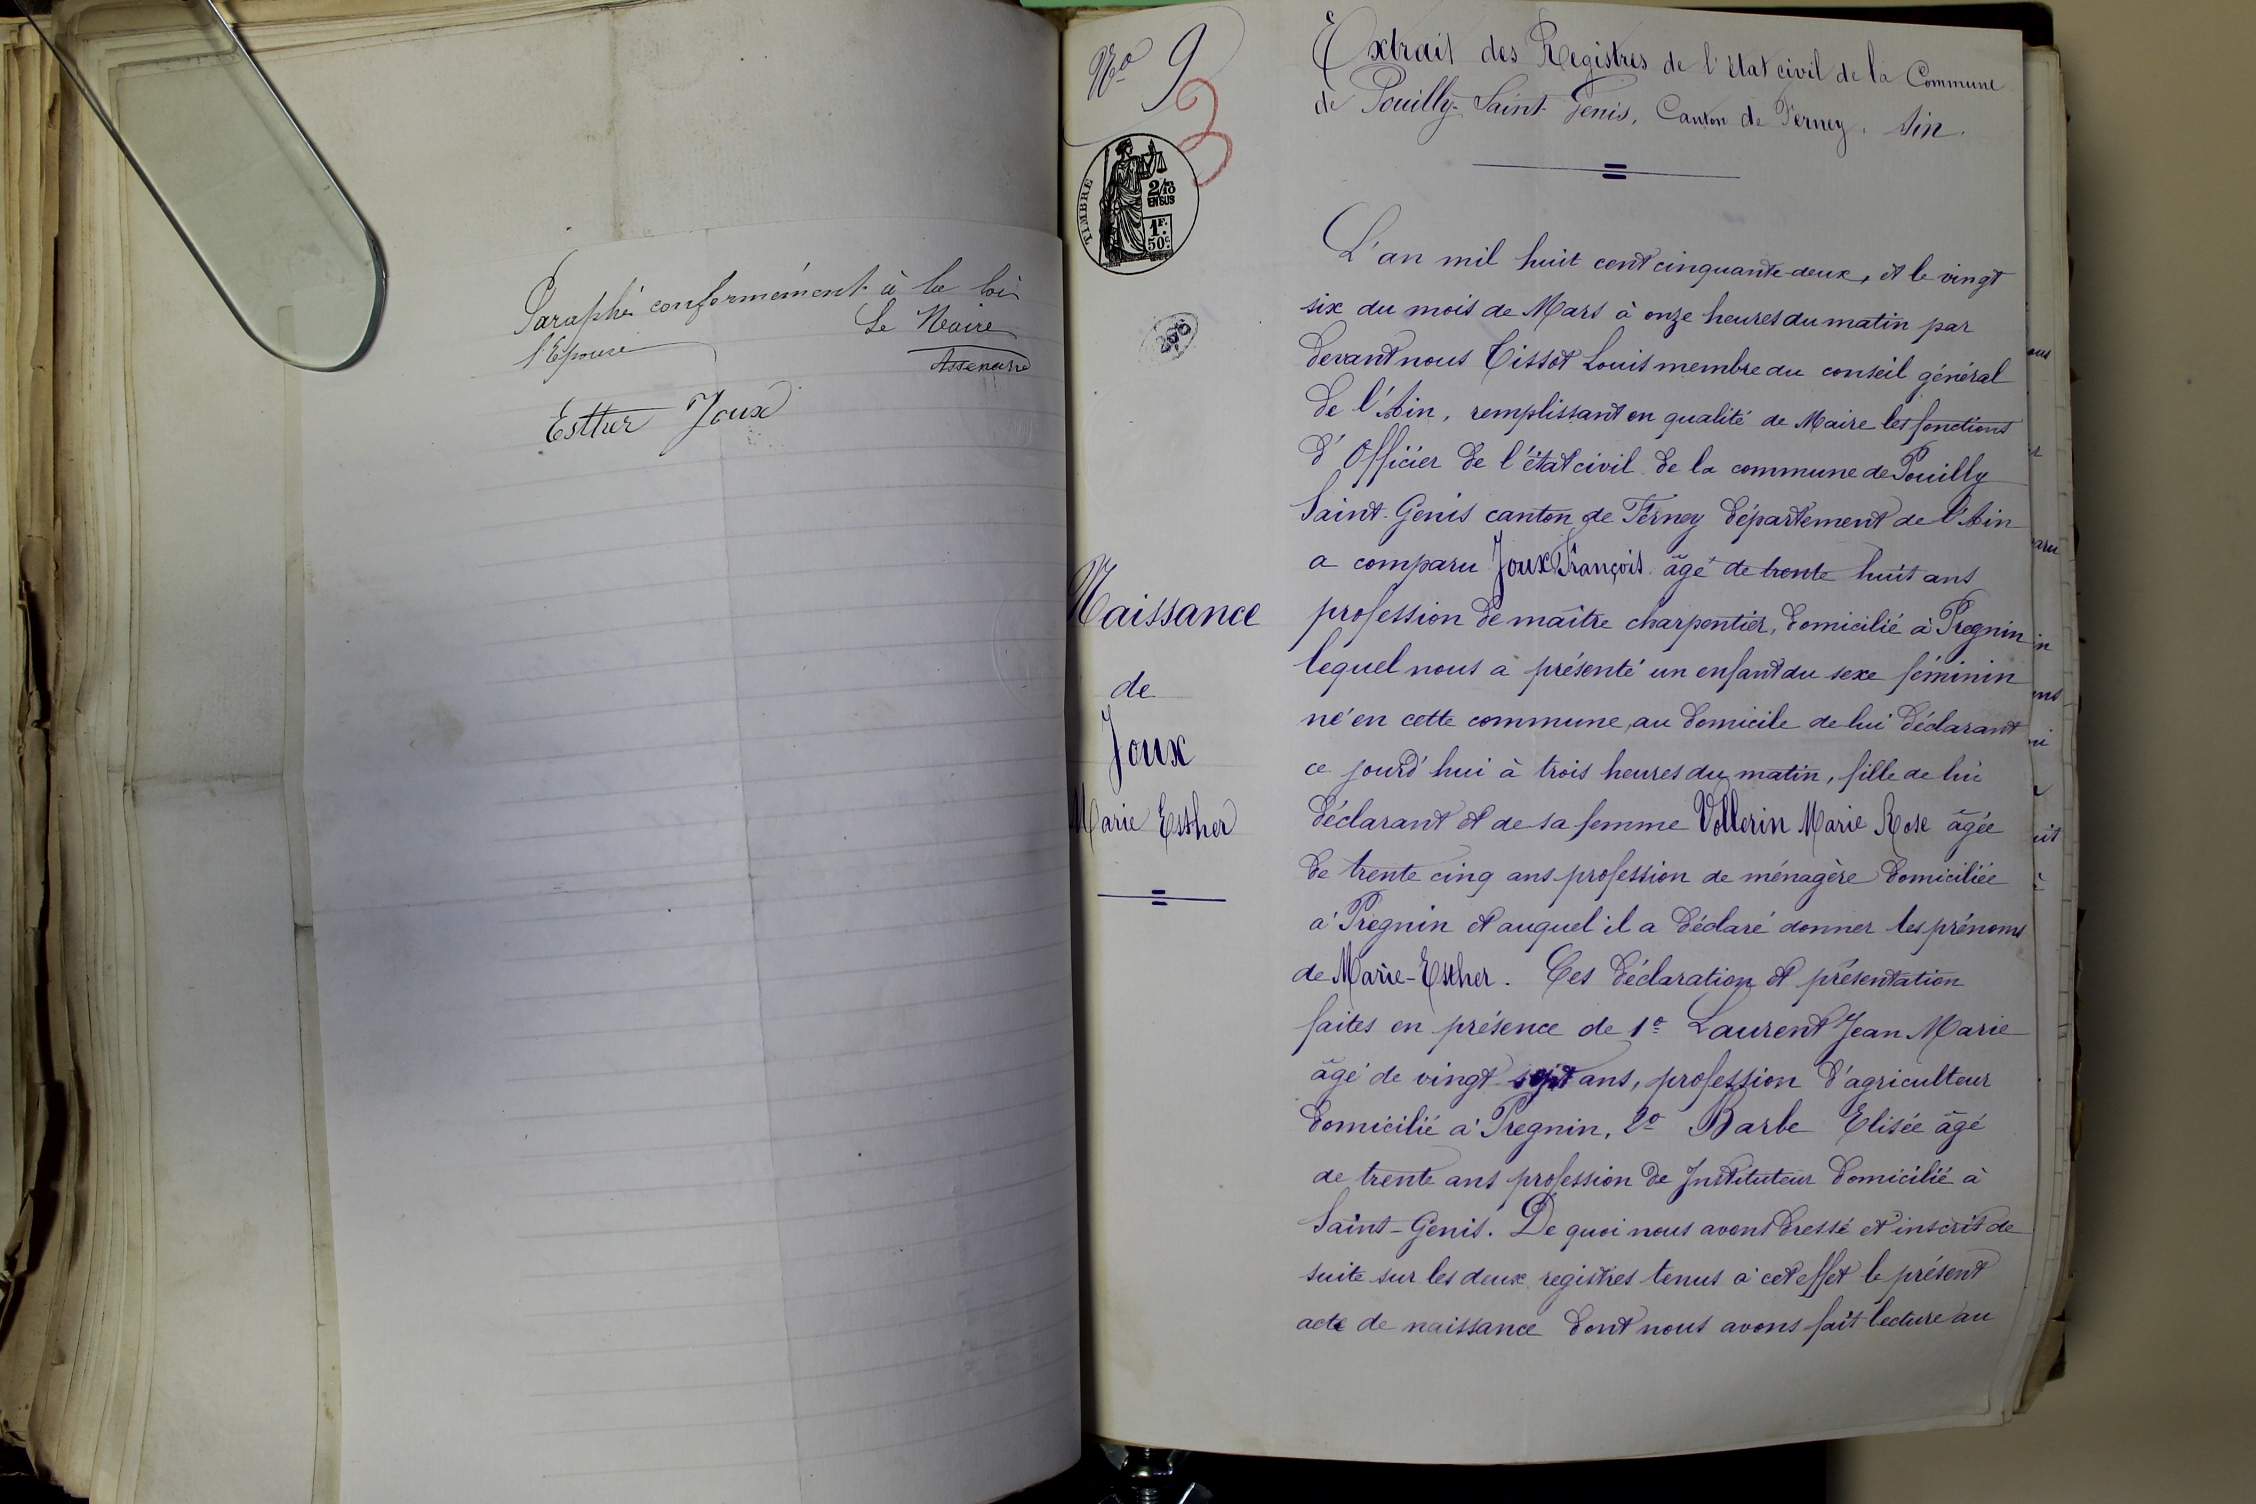 Paraphé conformément à la loi
l'Epouse Le Maire
Esther Joux
No 9
3
TIMBRE
2/10
EN SUS
1F.
50c
Extrait des Registres de l'état civil de la Commune
de Pouilly-Saint-Genis, Canton de Ferney, Ain.
L'an mil huit cent cinquante-deux, et le vingt
six du mois de Mars à onze heures du matin par
devant nous Tissot Louis membre du conseil général
de l'Ain, remplissant en qualité de Maire les fonctions
d'Officier de l'état civil de la commune de Pouilly
Saint-Genis canton de Ferney département de l'Ain
a comparu Joux François âgé de trente huit ans
profession de maître charpentier, domicilié à Pregnin
lequel nous a présenté un enfant du sexe féminin
né en cette commune, au domicile de lui déclarant
ce jourd'hui à trois heures du matin, fille de lui
déclarant et de sa femme Vollerin Marie Rose âgée
de trente cinq ans profession de ménagère domiciliée
à Pregnin et auquel il a déclaré donner les prénoms
de Marie-Esther. Ces déclaration et présentation
faites en présence de 1º Laurent Jean Marie
âgé de vingt-sept ans, profession d'agriculteur
domicilié à Pregnin, 2º Barbe Elisée âgé
de trente ans profession de Instituteur domicilié à
Saint-Genis. De quoi nous avons dressé et inscrit de
suite sur les deux registres tenus à cet effet le présent
acte de naissance dont nous avons fait lecture au
Naissance
de
Joux
Marie Esther